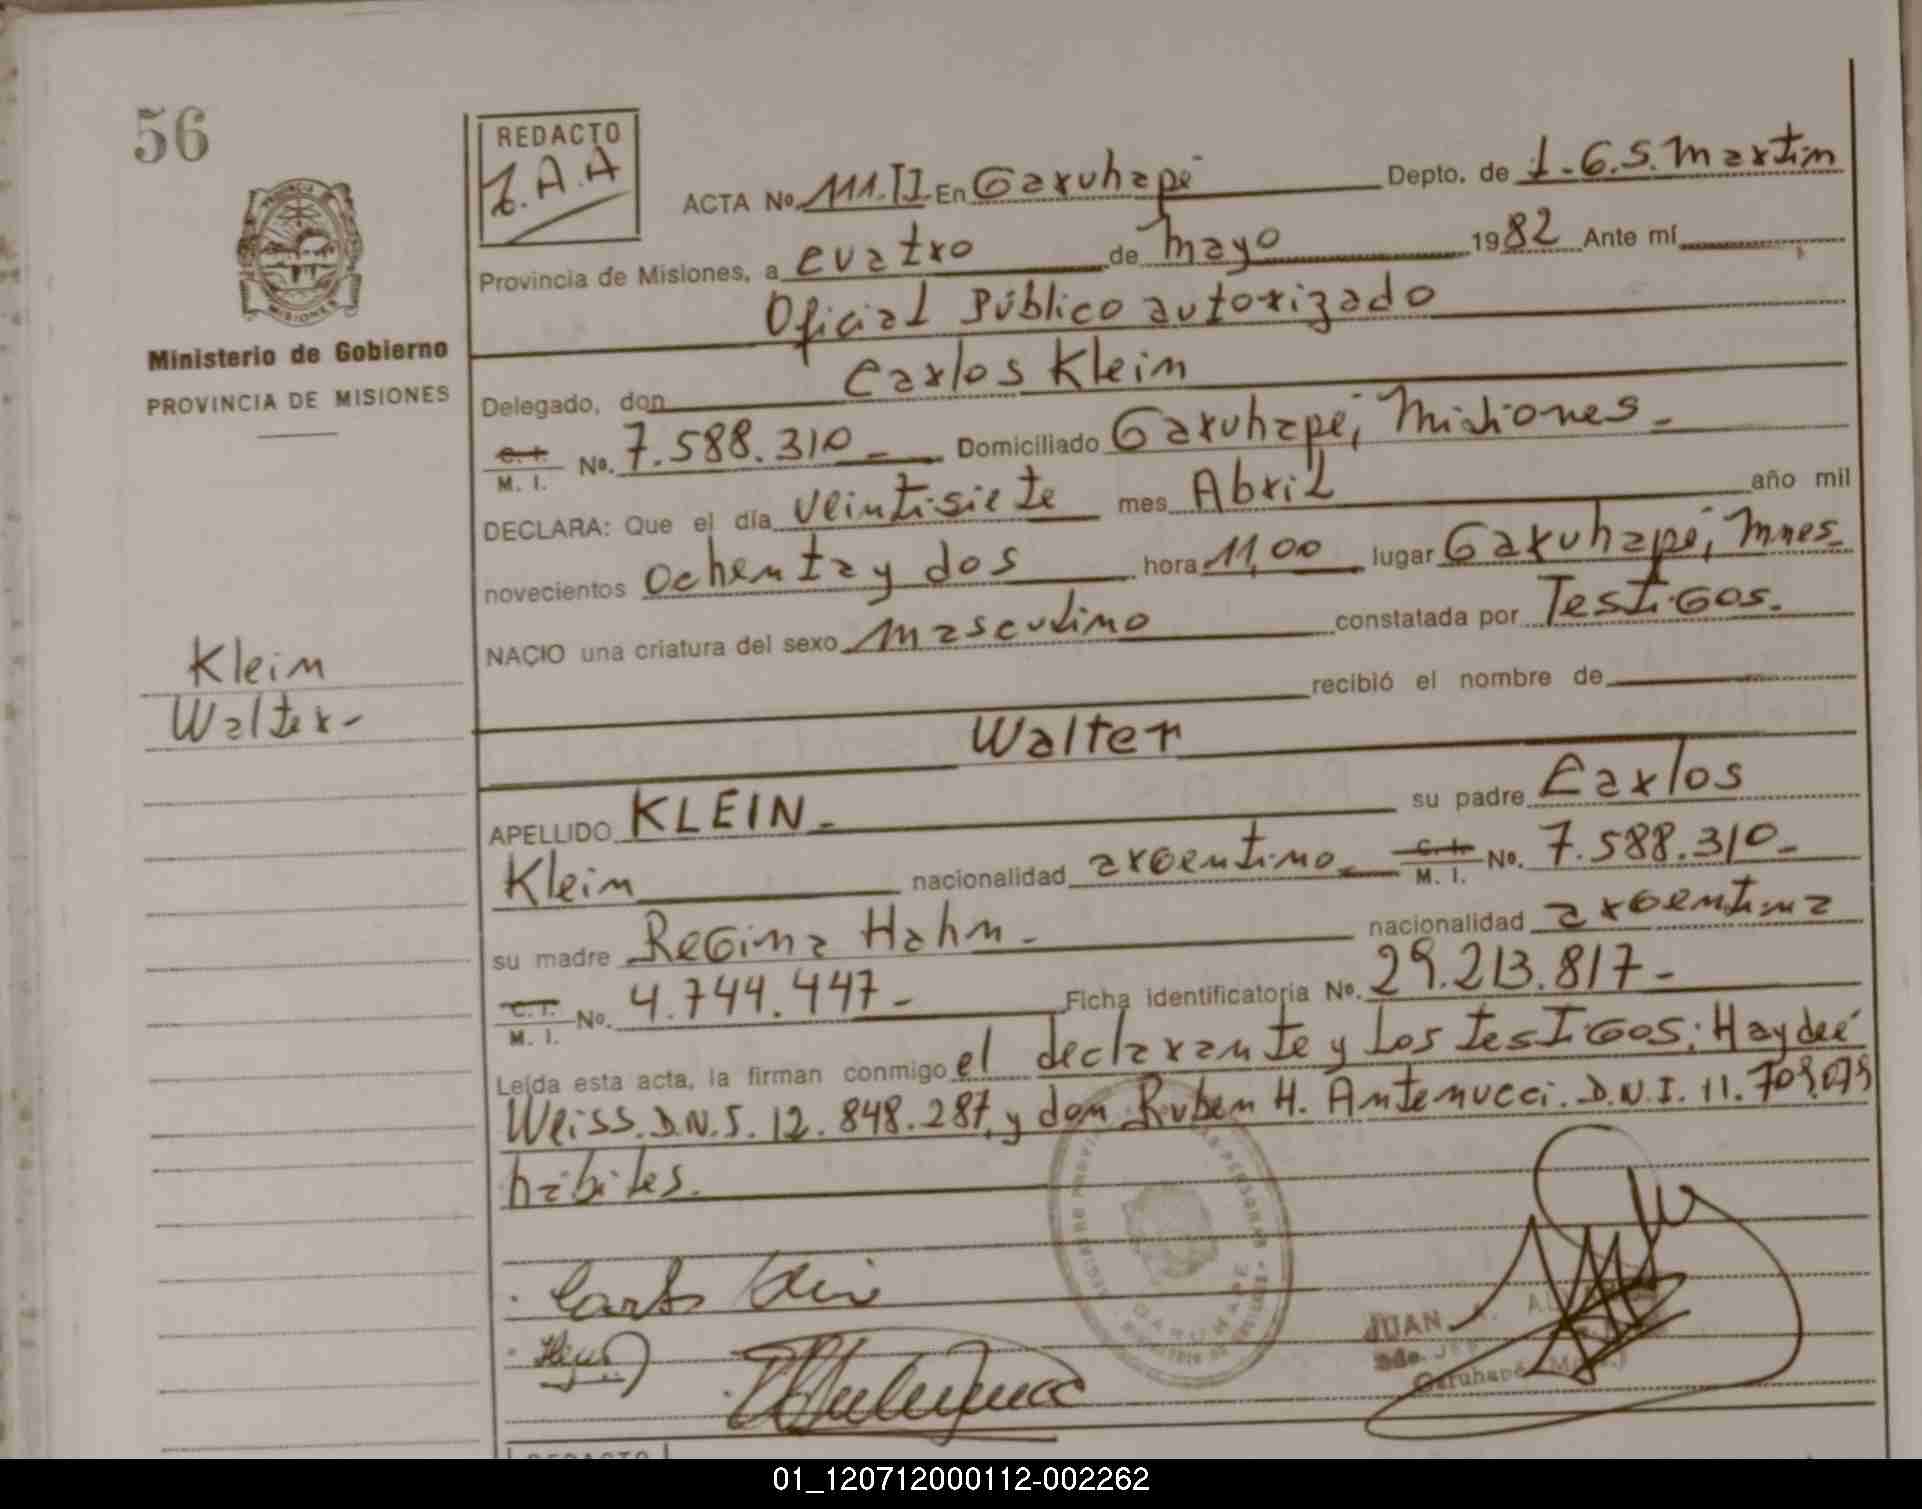 56
REDACTO
J.A.A
ACTA No. 111.II En Garuhapé Depto. de L.G.S. Martin
Provincia de Misiones, a cuatro de mayo 1982 Ante mí
Oficial Público autorizado
PROVINCIA
MISIONES
Ministerio de Gobierno
PROVINCIA DE MISIONES
Delegado, don Carlos Klein
C. I.
M. I. No. 7.588.310 Domiciliado Garuhapé, Misiones.
DECLARA: Que el día veintisiete mes Abril año mil
novecientos ochenta y dos hora 11,00 lugar Garuhapé, Mnes.
NACIO una criatura del sexo masculino constatada por Testigos.
recibió el nombre de
Klein
Walter-
Walter
APELLIDO KLEIN.- su padre Carlos
Klein nacionalidad argentino C. I.
M. I. No. 7.588.310-
su madre Regina Hahn- nacionalidad argentina
C. I.
M. I. No. 4.744.447- Ficha identificatoria No. 29.213.817-
Leída esta acta, la firman conmigo el declarante y los testigos: Haydeé
Weiss. D.N.I. 12.848.287, y don Ruben H. Antenucci. D.N.I. 11.709.079
hábiles.
Carlos Klein
JUAN
Garuhapé
REDACTO
01_120712000112-002262